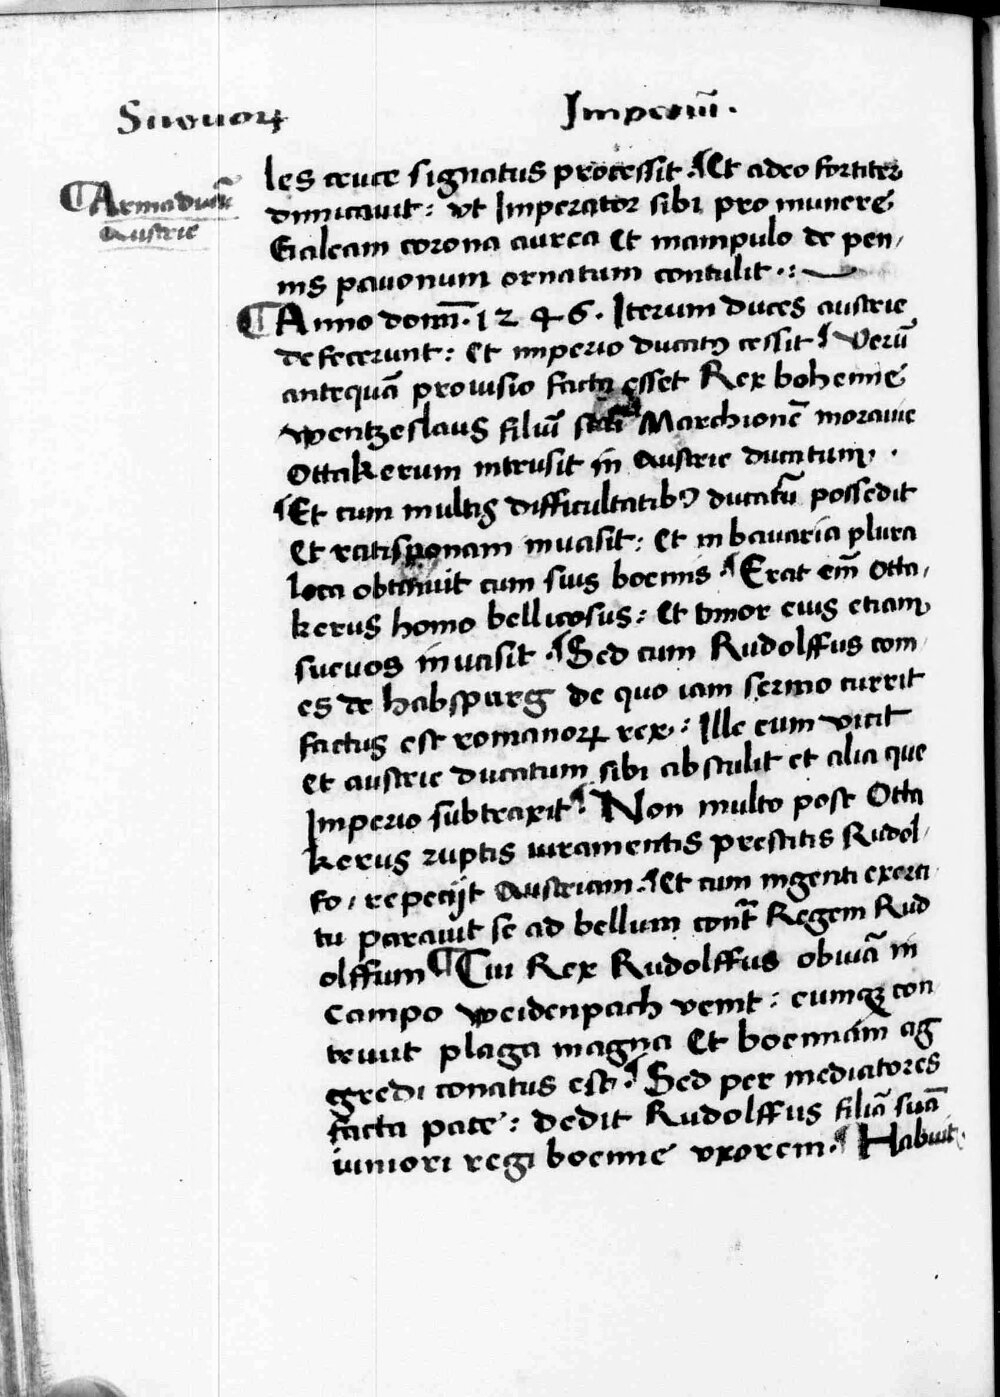 Sueuoꝝ Imperiū .
¶ Arma ducū
Austrie
les cruce signatus processit . ¶ Et adeo fortiter
dimicauit : vt Imperator sibi pro munere
Galeam corona aurea Et manipulo de pen/
nis pauonum ornatum contulit . :
¶ Anno domī . 1 2 4 6 . Iterum duces austrie
defecerunt : Et imperio ducatꝰ cessit ¶ Verū
antequā prouisio facta esset Rex bohemie
wentzeslaus filiū suū Marchionē morauie
Ottakerum intrusit in Austrie ducatum .
¶ Et cum multis difficultatibꝰ ducatū possedit
Et ratisponam inuasit : Et in bauaria plura
loca obtinuit cum suis boemis . ¶ Erat em̄ Otta/
kerus homo bellicosus : Et timor eius etiam
sueuos inuasit . ¶ Sed cum Rudolffus com
es de habspurg de quo iam sermo currit
factus est romanoꝝ rex : Ille eum vicit
Et austrie ducatum sibi abstulit et alia que
Imperio subtraxit ¶ Non multo post Otta
kerus ruptis iuramentis prestitis Rudol/
fo / repecijt Austriam . ¶ Et cum ingenti exerci
tu parauit se ad bellum contᷓ Regem Rud
olffum ¶ Cui Rex Rudolffus obuiā in
campo weidenpach venit : eumqꝫ con
triuit plaga magna Et boemiam ag
gredi conatus est . ¶ Sed per mediatores
facta pace : dedit Rudolffus filiā suā
iuniori regi boemie vxorem . ¶ Habuit